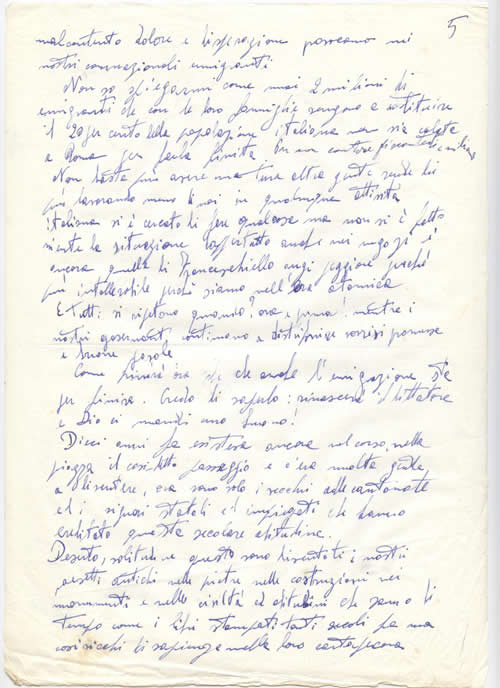 5
malcontento dolore e disperazione provocano nei
nostri connazionali emigranti.
Non so spiegarmi come mai 2 milioni di
emigranti che con le loro famiglie vengono a costituire
il 20 per cento della popolazione italiana non sia calata
a Roma per farla finita.
Non basta più avere una terra altra gente
più lavorando meno di noi in qualunque attività
italiana si è cercato di fare qualcosa ma non si è fatto
niente la situazione soprattutto anche nei negozi è
ancora quella di Franceschiello anzi peggiore perché
più intollerabile perché siamo nell'era atomica
E tutti si ripetono quando? ora e prima! mentre i
nostri governanti continuano a distribuire sorrisi promesse
e buone parole
Come finirà ora che anche l'emigrazione sta
per finire. Credo di saperlo: rinascerà il dittatore
e Dio ci mandi uno buono!
Dieci anni fa esisteva ancora nel corso, nella
piazza il cosidetto passeggio e c'era molta gente
a discutere, ora sono solo i vecchi alle cantonate
ed i signori statali ed impiegati che hanno
ereditato questa secolare abitudine.
Deserto, solitudine questo sono diventati i nostri
paesetti antichi nelle pietre nelle costruzioni nei
monumenti e nelle civiltà ed abitudini che sanno di
tempo come i libri stampati tanti secoli fa ma
così ricchi di sapienza nella loro cartapecora